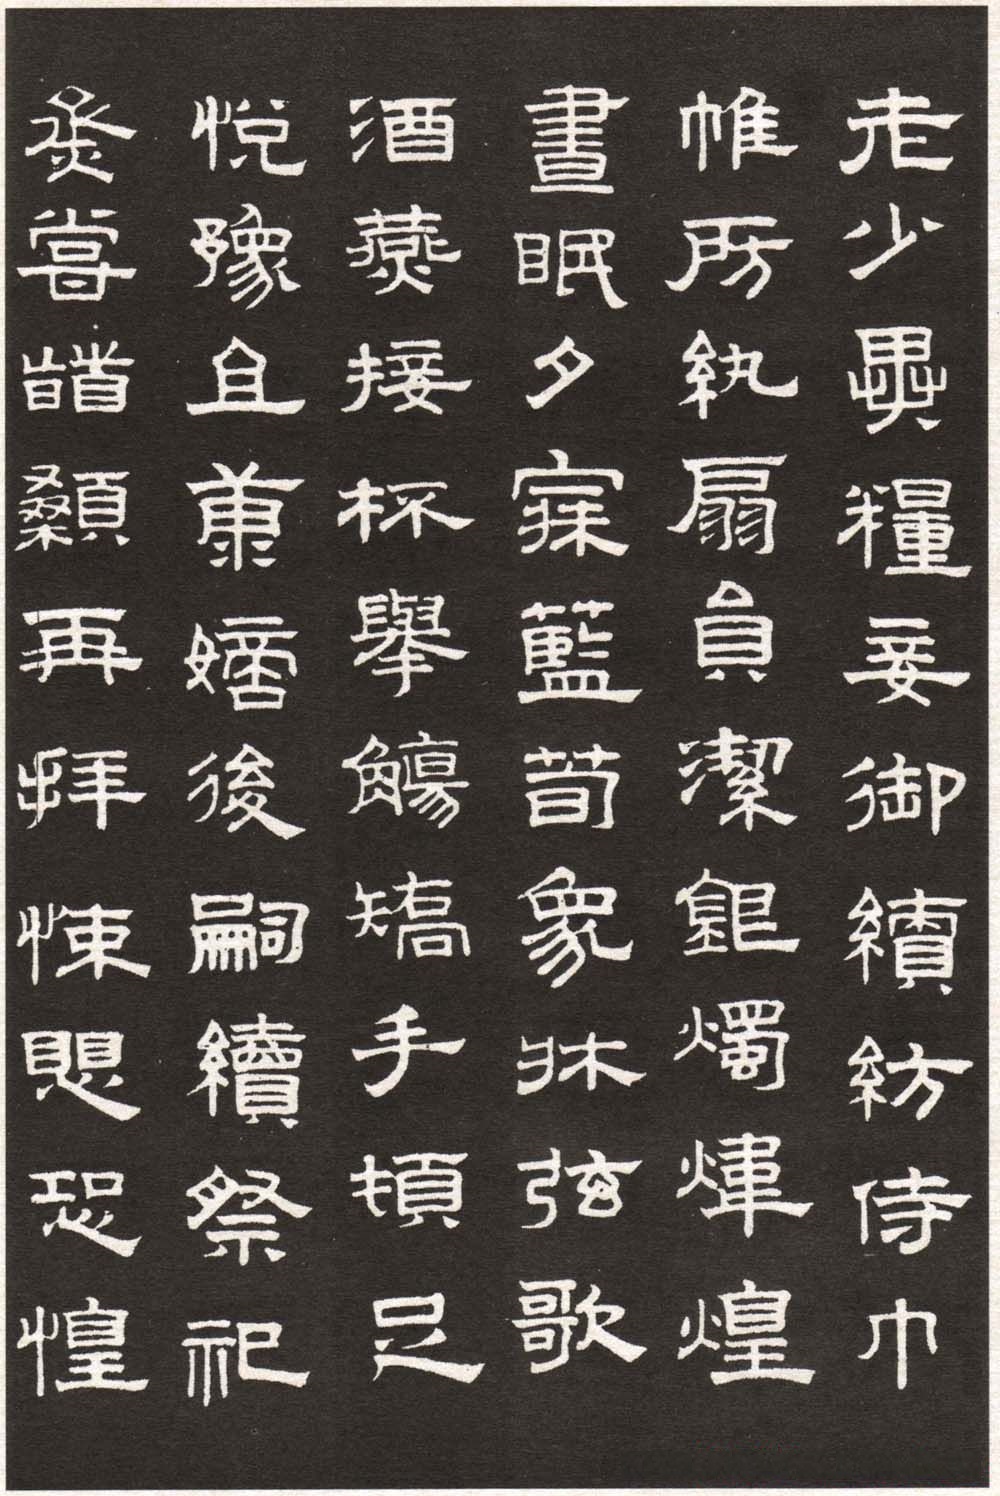 老少異糧妾御績紡侍巾
帷房紈扇員潔銀燭煒煌
晝眠夕寐藍筍象牀弦歌
酒燕接杯舉觴矯手頓足
悅豫且康嫡後嗣續祭祀
烝嘗䭫顙再拜悚愳恐惶